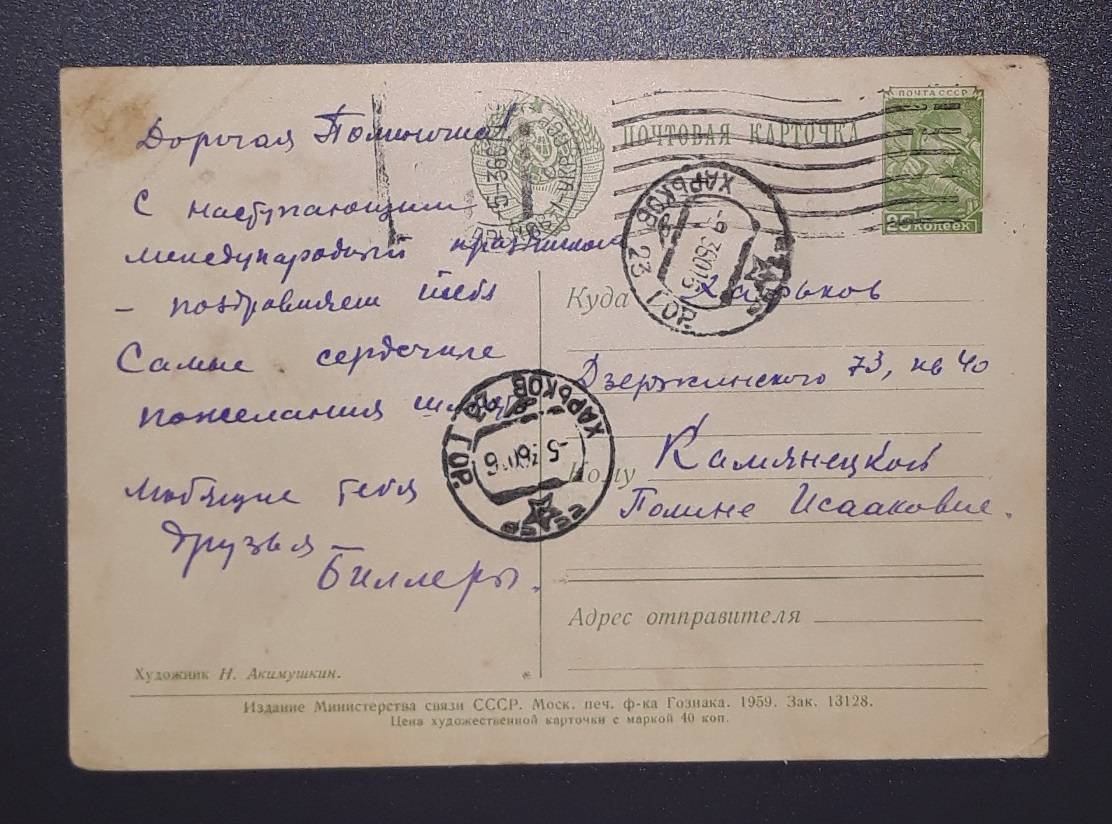 Дорогая Полиночка!
С наступающим
международным праздником
– поздравляем тебя
Самые сердечные
пожелания шлют
любящие тебя
друзья –
Биллеры.
Художник Н. Акимушкин.
ПОЧТОВАЯ КАРТОЧКА
ПОЧТА СССР
25 КОПЕЕК
ХАРЬКОВ 23 ГОР.
Куда Харьков
Дзержинского 73, кв 40
Кому Камянецкой
Полине Исааковне.
ХАРЬКОВ 23 ГОР.
Адрес отправителя
Издание Министерства связи СССР. Моск. печ. ф-ка Гознака. 1959. Зак. 13128.
Цена художественной карточки с маркой 40 коп.